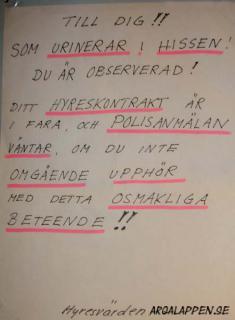 TILL DIG !!
SOM URINERAR I HISSEN!
DU ÄR OBSERVERAD!
DITT HYRESKONTRAKT ÄR
I FARA, OCH POLISANMÄLAN
VÄNTAR, OM DU INTE
OMGÅENDE UPPHÖR
MED DETTA OSMAKLIGA
BETEENDE !!
Hyresvärden
ARGALAPPEN.SE